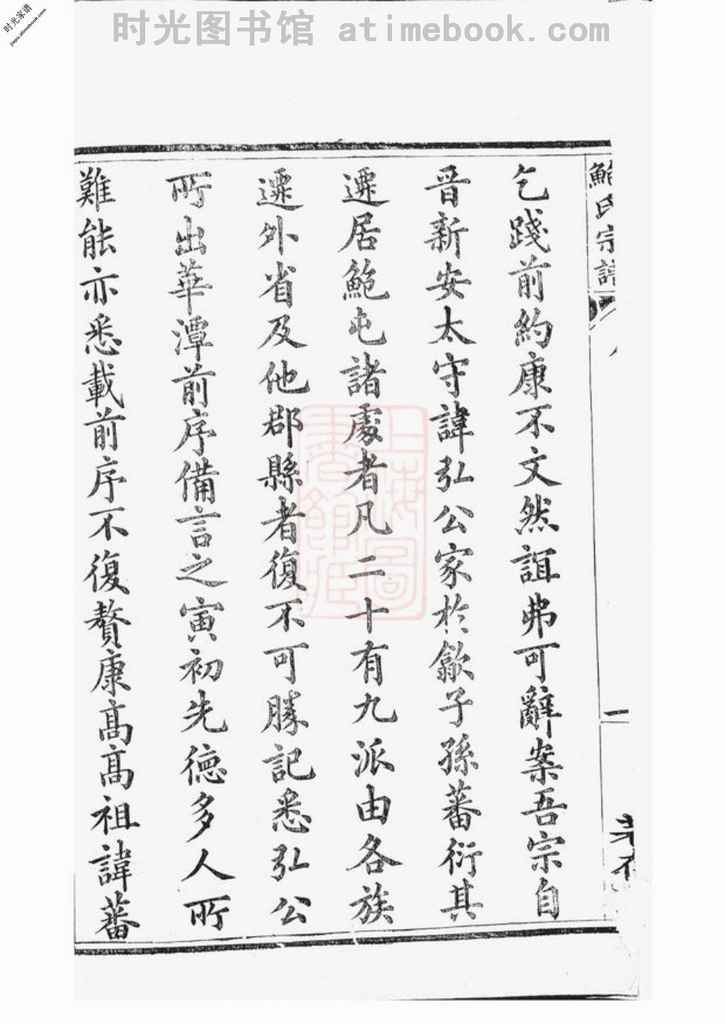 时光图书馆 atimebook.com
时光家谱
鮑氏宗譜
乞踐前約康不文然誼弗可辭案吾宗自
晋新安太守諱弘公家於歙子孫蕃衍其
遷居鮑屯諸處者凡二十有九派由各族
遷外省及他郡縣者復不可勝記悉弘公
所出華潭前序備言之寅初先德多人所
難能亦悉載前序不復贅康高高祖諱蕃